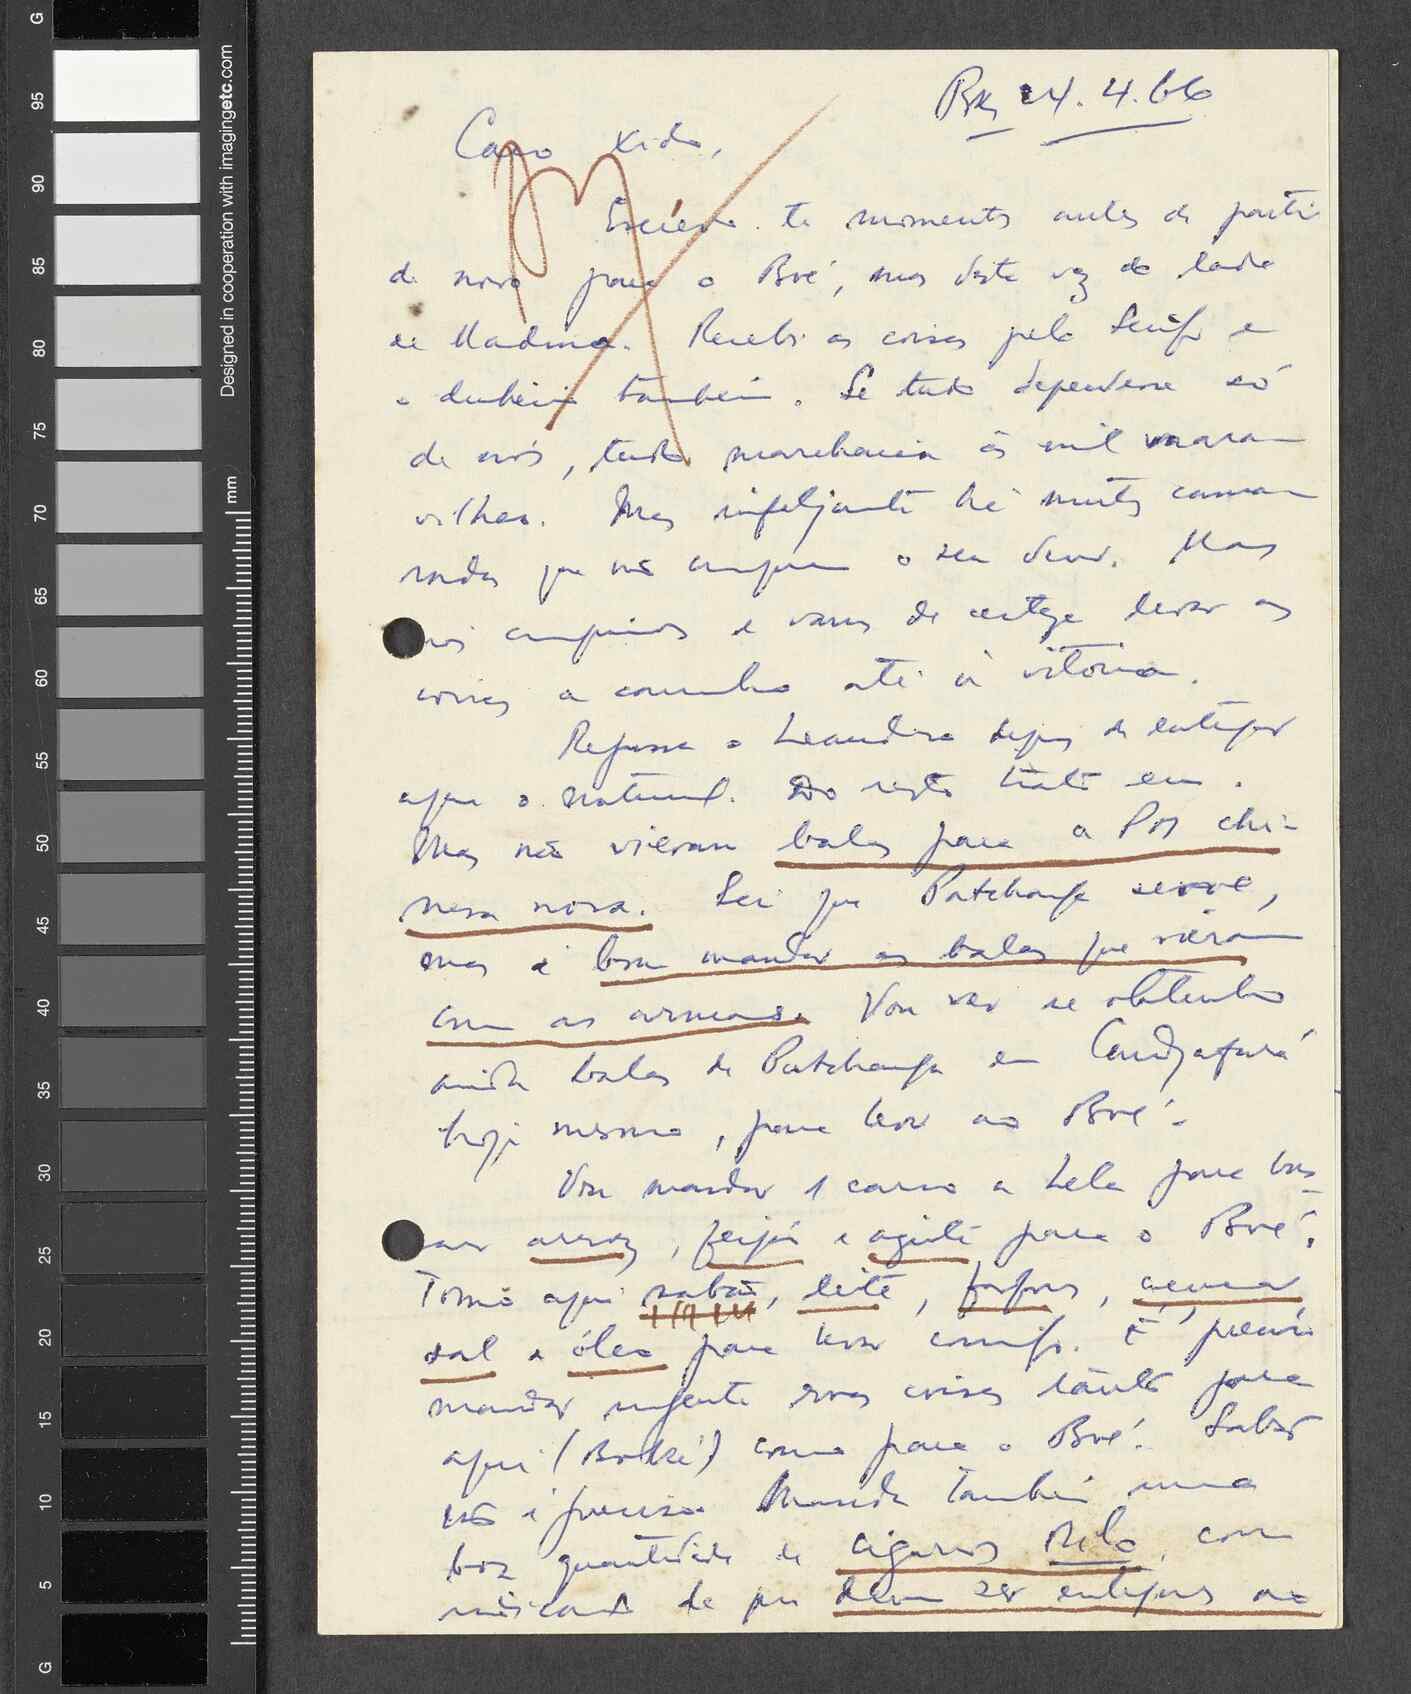 Bké 24.4.66
Caro Xido,
Escrevo-te momentos antes de partir
de novo para o Boé, mas desta vez do lado
de Madina. Recebi as coisas pelo Serifo e
o dinheiro também. Se tudo dependesse só
de nós, tudo marcharia às mil maravi
vilhas. Mas infelizmente há muitos cama
radas que não cumprem o seu dever. Mas
nós cumprimos e vamos de certeza levar as
coisas a caminho até à vitória.
Regressa o Leandro depois de entregar
aqui o material. Do resto trato eu.
Mas não vieram balas para a P M chi-
nesa nova. Sei que Patchanga serve,
mas é bom mandar as balas que vieram
com as armas. Vou ver se obtenho
ainda balas de Patchanga em Candjafará
hoje mesmo, para levar ao Boé.
Vou mandar 1 carro a Lela para bus-
car arroz, feijão e azeite para o Boé.
Tomo aqui sabão, leite, fósforos, açucar,
sal e óleo para levar comigo. É preciso
mandar urgente essas coisas tanto para
aqui (Boké) como para o Boé. Sabão
não é preciso. Manda também uma
boa quantidade de cigarros Milo, com
indicação de que devem ser entregues ao
G
95
90
85
80
75
70
65
60
55
50
45
40
35
30
25
20
15
10
5
G
Designed in cooperation with imagingetc.com
mm